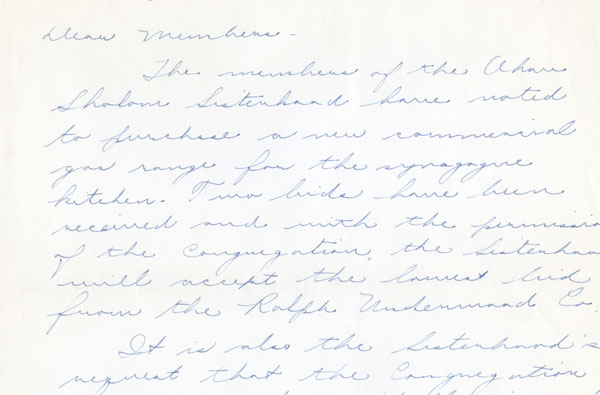 Dear Members -
The members of the Ahav
Sholom Sisterhood have voted
to purchase a new commercial
gas range for the synagogue
kitchen. Two bids have been
received and with the permissio
of the Congregation, the Sisterhoo
will accept the lowest bid
from the Ralph Underwood Co.
It is also the Sisterhood's
request that the Congregation